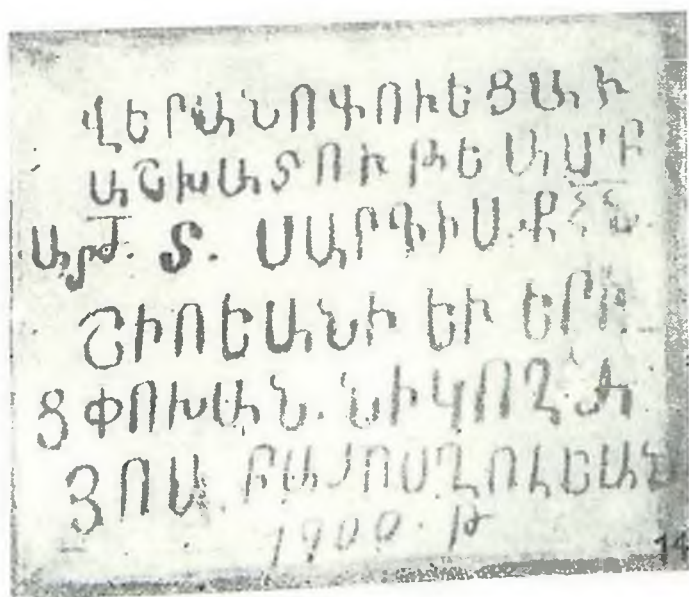 ՎԵՐԱՆՈԳՈՒԵՑԱՒ
ԱՇԽԱՏՈՒԹԵԱՄԲ
ԱՐԺ. Տ. ՍԱՐԳԻՍ ՔՀՆ.
ՇԻՌԵԱՆԻ ԵՒ ԵՐԵ
ՑՓՈԽԱՆ. ՆԻԿՈՂԱ
ՅՈՍ.
1900. Թ
14